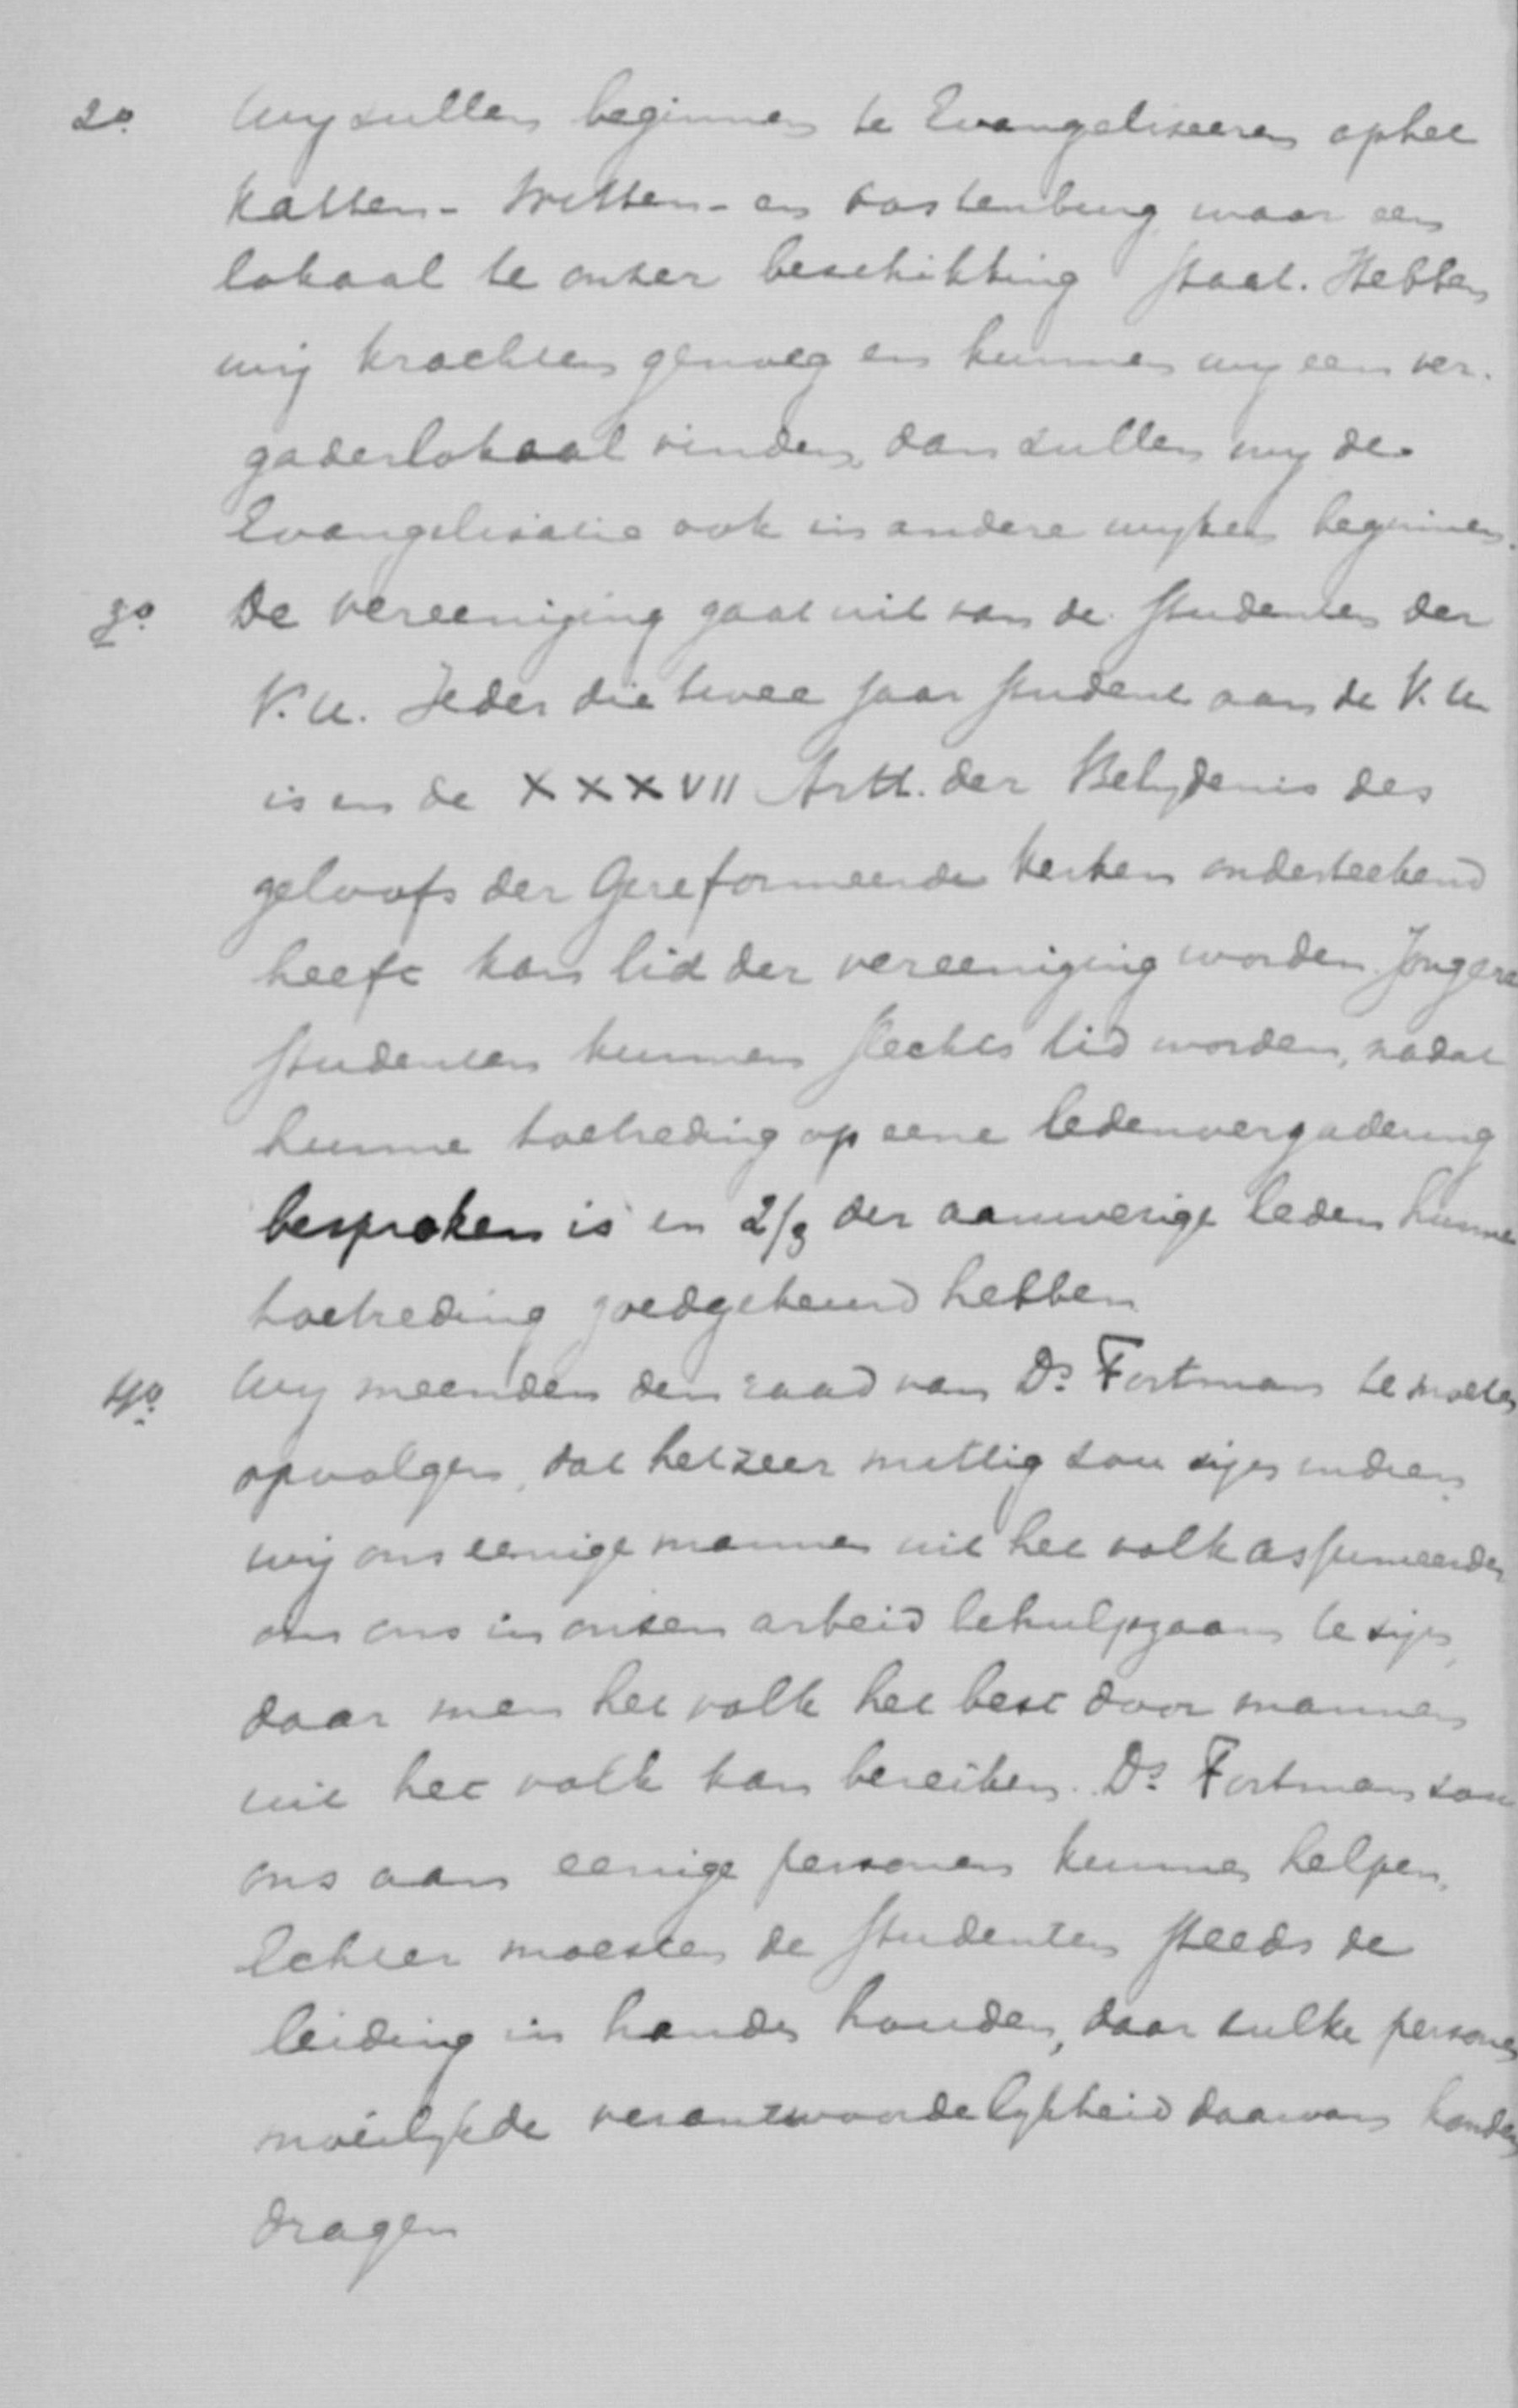 2o. Wij zullen beginnen te Evangeliseeren op het
Katten- Witten- en Oostenburg, waar een
lokaal te onzer beschikking staat. Hebben
wij krachten genoeg en kunnen wij een ver-
gaderlokaal vinden, dan zullen wij de
Evangelisatie ook in andere wijken beginnen.
3o. De vereeniging gaat uit van de studenten der
V.U. Ieder die twee jaar student aan de V.U
is en de XXXVII Artt. der Belijdenis des
geloofs der Gereformeerde Kerken onderteekend
heeft kan lid der vereeniging worden. Jongere
studenten kunnen slechts lid worden, nadat
hunne toetreding op eene ledenvergadering
besproken is en 2/3 der aanwezige leden hunne
toetreding goedgekeurd hebben
4o. Wij meenden den raad van Ds. Fortman te moeten
opvolgen, dat het zeer nuttig zou zijn indien
wij ons eenige mannen uit het volk assumeerden
om ons in onzen arbeid behulpzaam te zijn,
daar men het volk het best door mannen
uit het volk kan bereiken. Ds. Fortman zou
ons aan eenige personen kunnen helpen.
Echter moesten de studenten steeds de
leiding in handen houden, daar zulke personen
moeilijk de verantwoordelijkheid daarvan konden
dragen